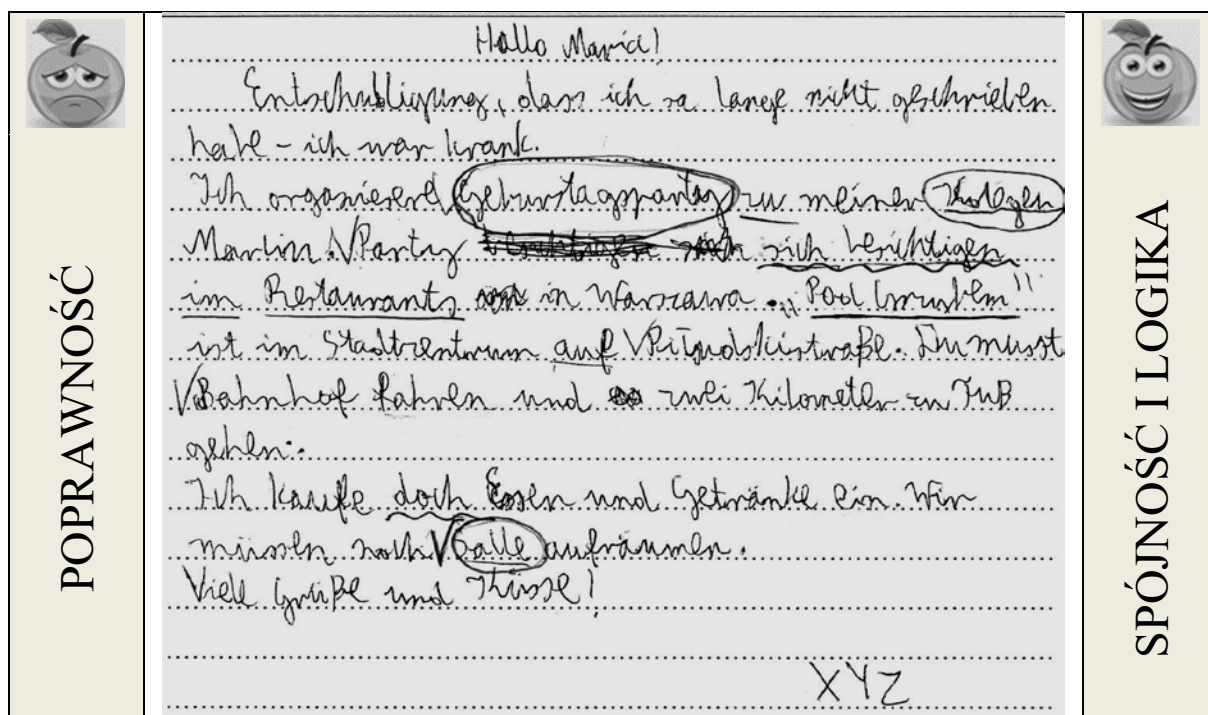 POPRAWNOŚĆ
Hallo Maria!
Entschubligung, dass ich so lange nicht geschrieben
habe - ich war krank.
Ich organisiere Geburstagsparty zu meiner Kolegen
Martin. √ Party sich besichtigen
im Restaurants in Warszawa. "Pod Gruszkem"
ist im Stadtzentrum auf √ Piłsudskistraße. Du musst
√ Bahnhof fahren und zwei Kilometer zu Fuß
gehen.
Ich kaufe doch Essen und Getränke ein. Wir
müssen noch √ Salle aufräumen.
Viele Grüße und Küsse!
XYZ
SPÓJNOŚĆ I LOGIKA